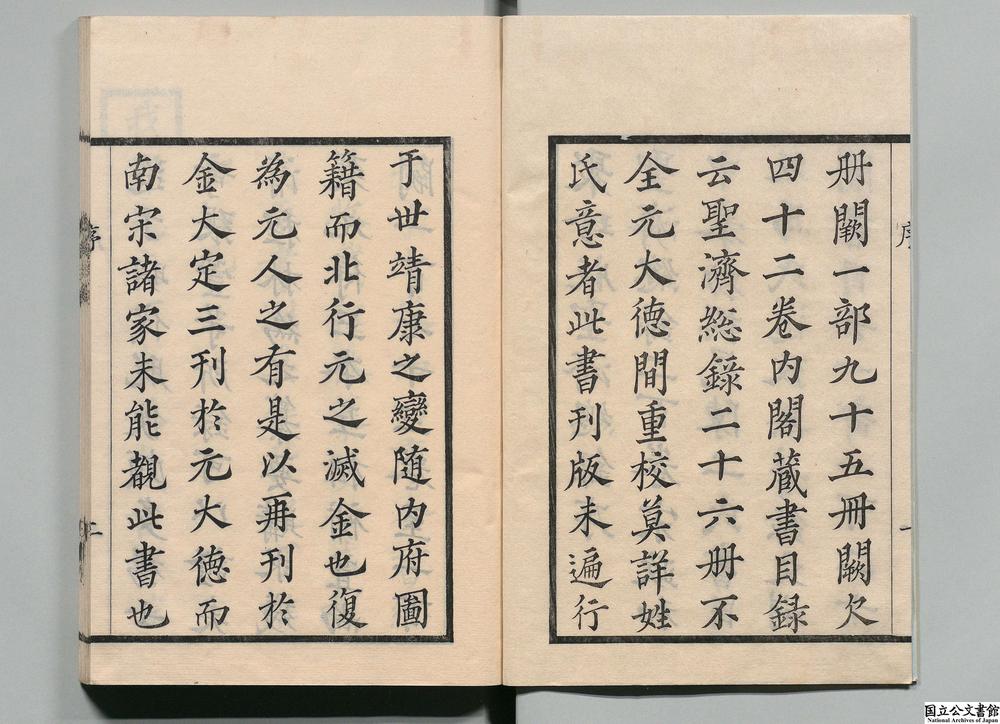 册闕一部九十五冊闕欠
四十二卷内閣藏書目録
云聖濟総録二十六册不
全元大德間重校莫詳姓
氏意者此書刊版未遍行
于世靖康之變随内府圖
籍而北行元之滅金也復
為元人之有是以再刊於
金大定三刊於元大德而
南宋諸家未能覩此書也
序
二
国立公文書館
National Archives of Japan